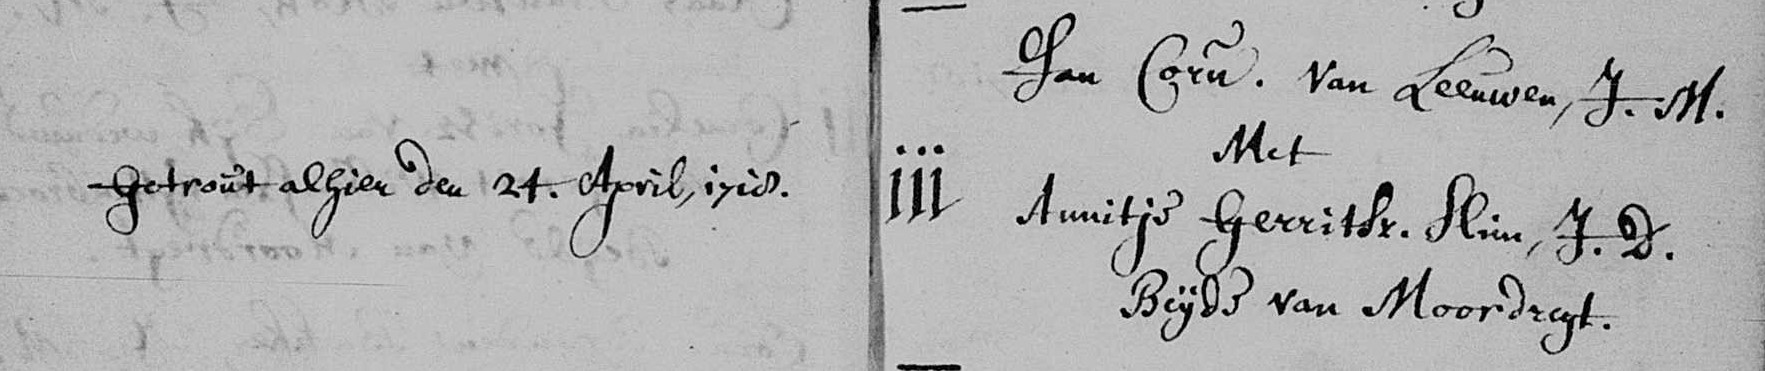 Getrout alhier den 24. April, 1718.
iii
Jan Corn. van Leeuwen, J. M.
Met
Annitje Gerrits. Slim, J. D.
Beÿde van Moordregt.